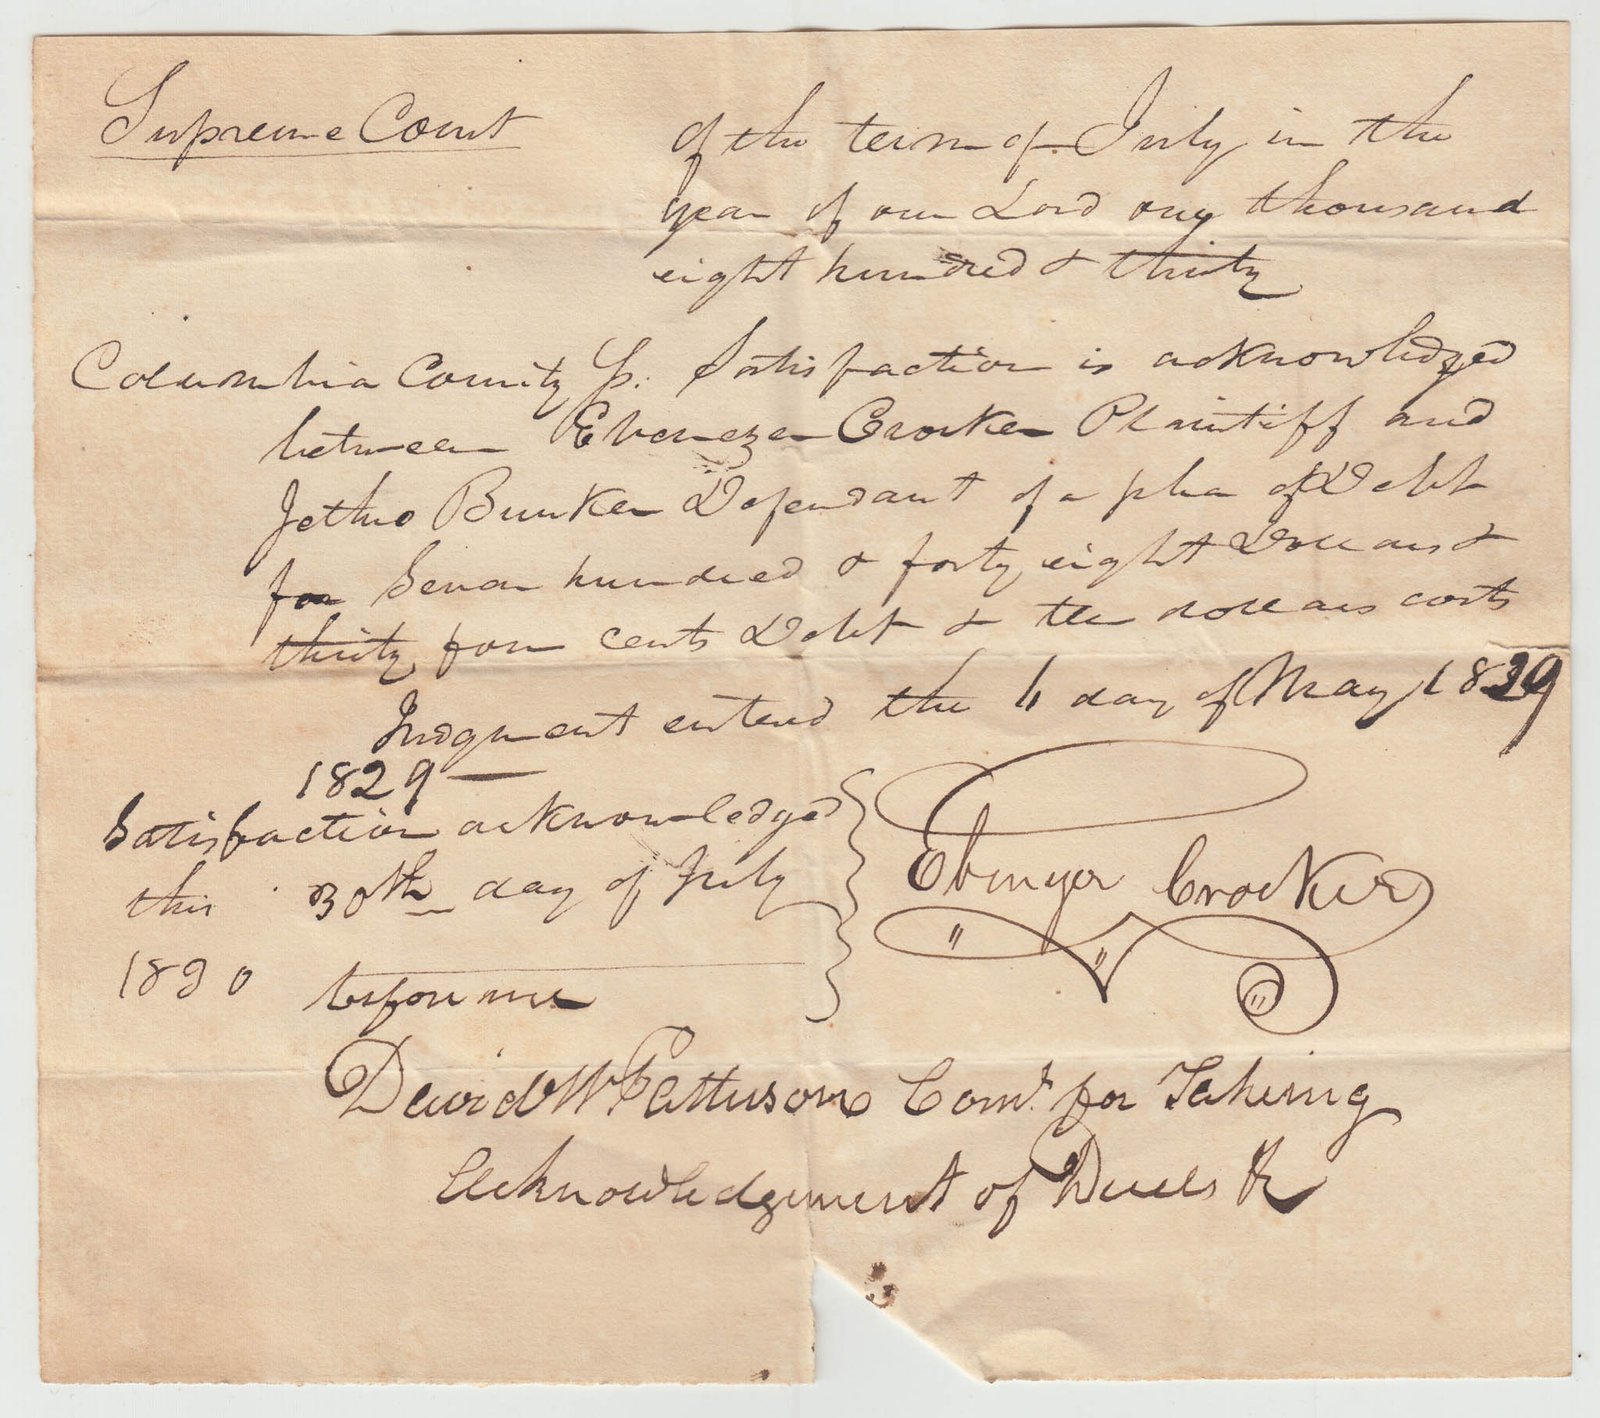 Supreme Court
of the term of July in the
year of our Lord one thousand
eight hundred & thirty
Columbia County Ss. Satisfaction is acknowledged
between Ebenezer Crocker Plaintiff and
Jethro Bunker Defendant of a plea of Debt
for Seven hundred & forty eight Dollars &
thirty four cents Debt & ten dollars costs
Judgment entered the 4 day of May 1829
1829
Satisfaction acknowledged
this 30th day of July
1830 before me
Ebenezer Crocker
David W Patterson Comr. for Taking
Acknowledgement of Deeds &c